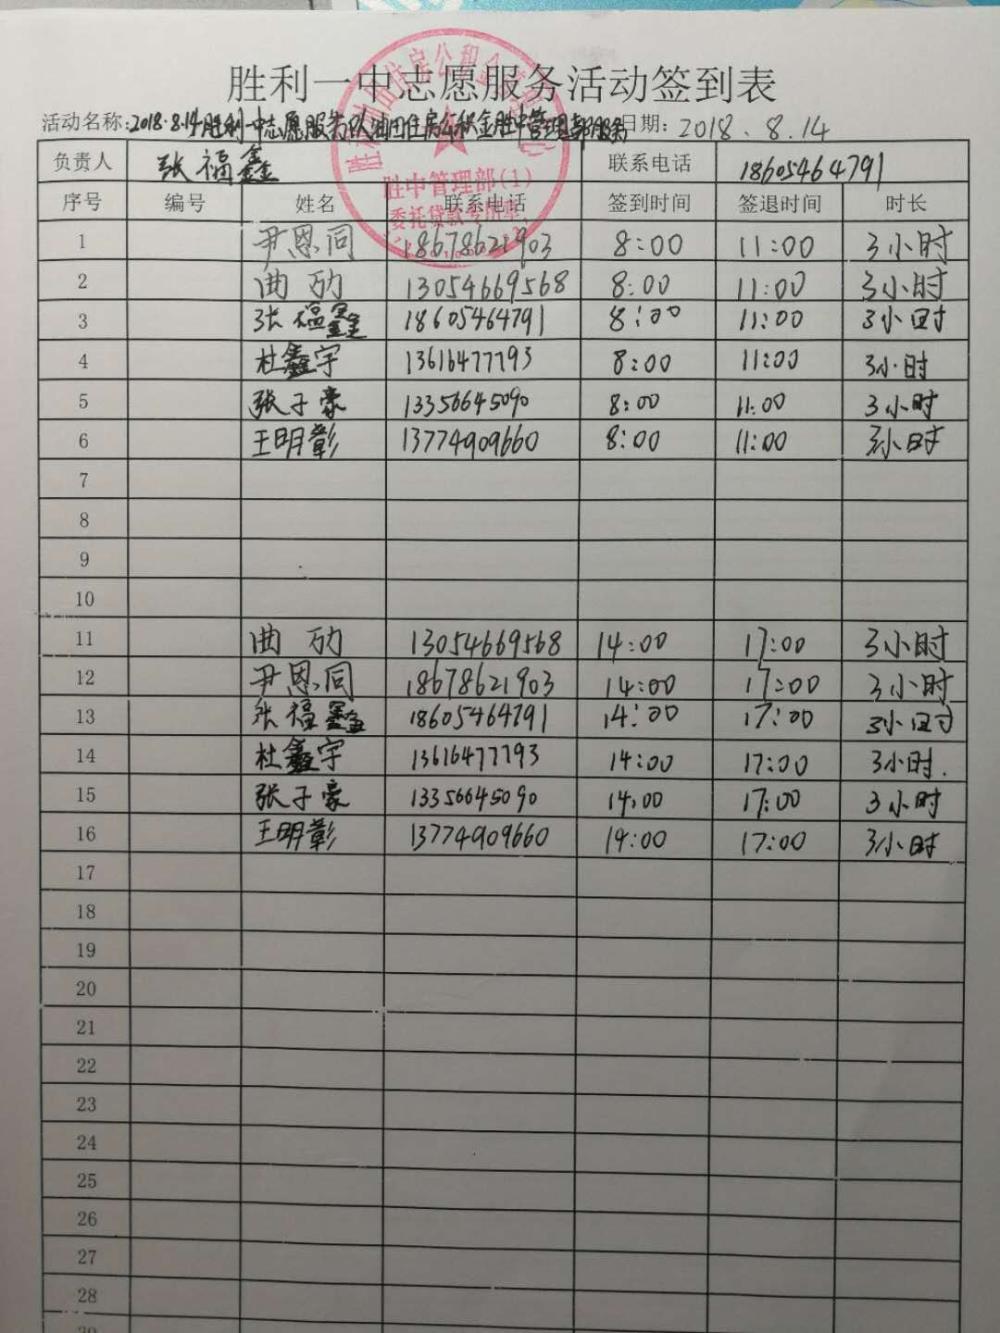 胜利一中志愿服务活动签到表
活动名称:2018.8.14胜利一中志愿服务队油田住房公积金胜中管理部服务 日期: 2018.8.14
负责人 张福鑫 联系电话 18605464791
序号 编号 姓名 联系电话 签到时间 签退时间 时长
胜中管理部(1)
委托贷款专用章
1 尹恩同 18678621903 8:00 11:00 3小时
2 曲 13054669568 8:00 11:00 3小时
3 张福鑫 18605464791 8:00 11:00 3小时
4 杜鑫宇 13616477793 8:00 11:00 3小时
5 张子豪 13356645090 8:00 11:00 3小时
6 王明彰 13774909660 8:00 11:00 3小时
7
8
9
10
11 曲 13054669568 14:00 17:00 3小时
12 尹恩同 18678621903 14:00 17:00 3小时
13 张福鑫 18605464791 14:00 17:00 3小时
14 杜鑫宇 13616477793 14:00 17:00 3小时.
15 张子豪 13356645090 14:00 17:00 3小时
16 王明彰 13774909660 14:00 17:00 3小时
17
18
19
20
21
22
23
24
25
26
27
28